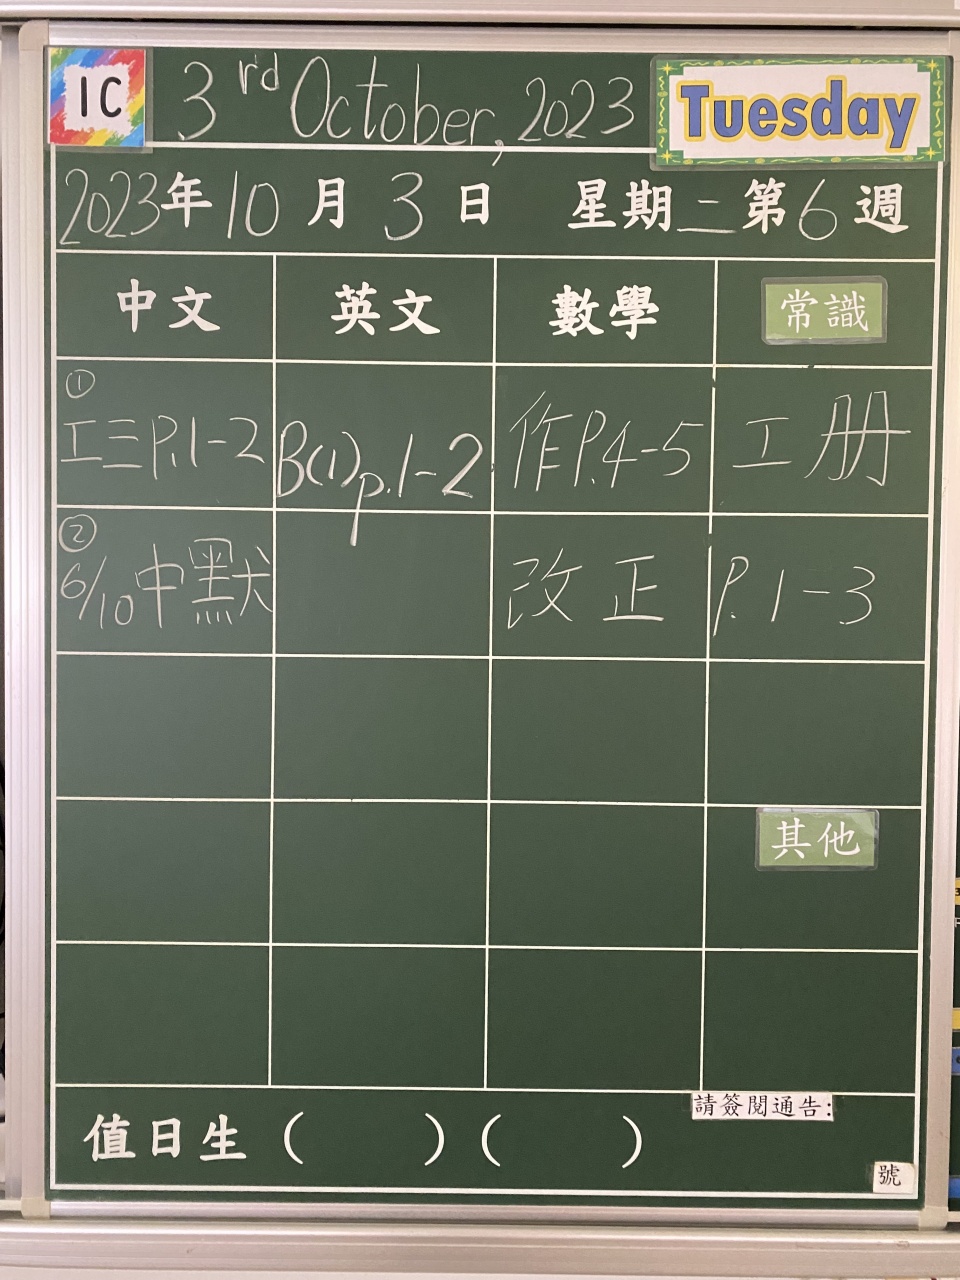 1C 3rd October, 2023 Tuesday
2023年10月3日 星期二第6週
中文 英文 數學 常識
① 工三P.1-2 B(1)p.1-2 作P.4-5 工册
② 6/10中默 改正 P.1-3
其他
請簽閱通告:
值日生( )( )
號